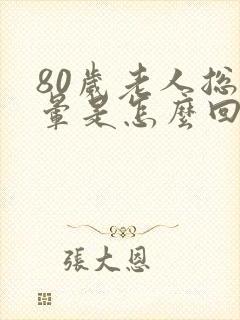 80歲老人総
暈是怎麼回
張大恩